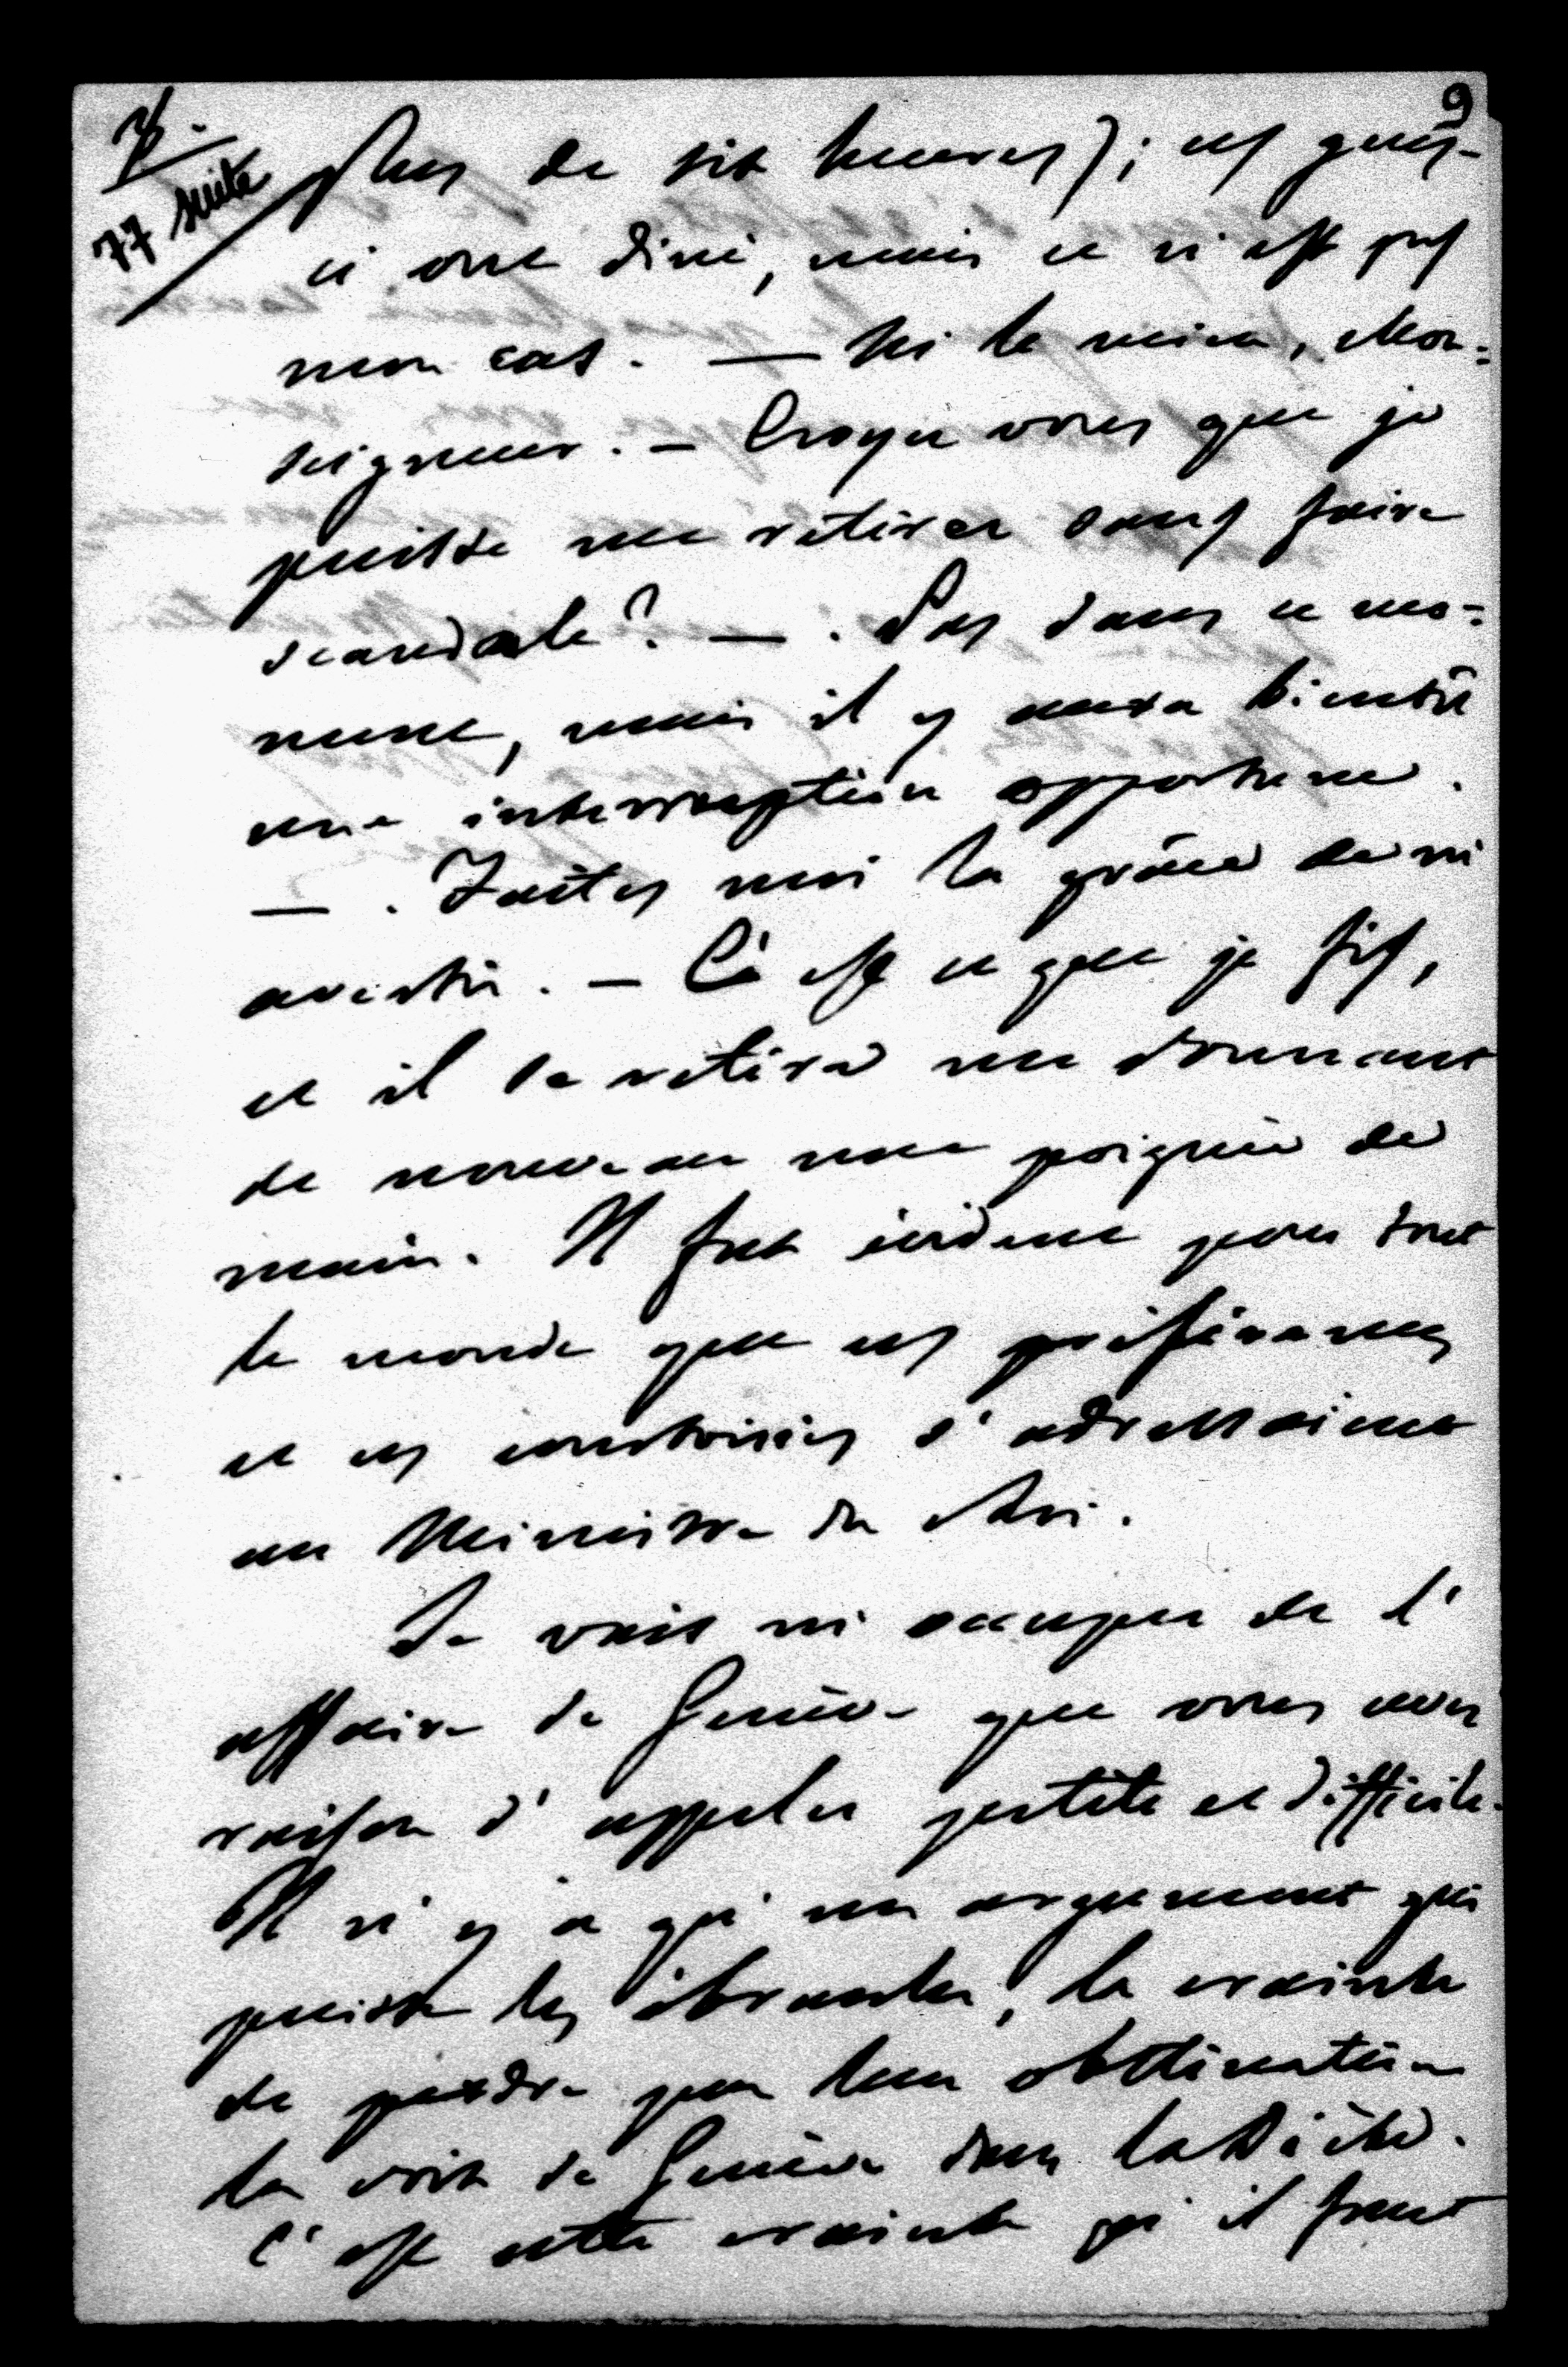 9
77 suite
plus de six heures); ces gens-
ci ont diné, mais ce n'est pas
mon cas. — Ni le mien, Mon=
seigneur. — Croyez vous que je
puisse me retirer sans faire
scandale? — . Pas dans ce mo=
ment, mais il y aura bientôt
une interruption opportune.
— . Faites moi la grâce de m'
avertir. — C'est ce que je fis,
et il se retira me donnant
de nouveau une poignée de
main. Il fut évident pour tout
le monde que ces préférences
et ces courtoisies s'adressaient
au Ministre du Roi.
Je vais m'occuper de l'
affaire de Genève que vous avez
raison d'appeler petite et difficile.
Il n'y a qu'un argument qui
puisse les ébranler, la crainte
de perdre par leur obstination
la voix de Genève dans la Diète.
C'est cette crainte qu'il faut